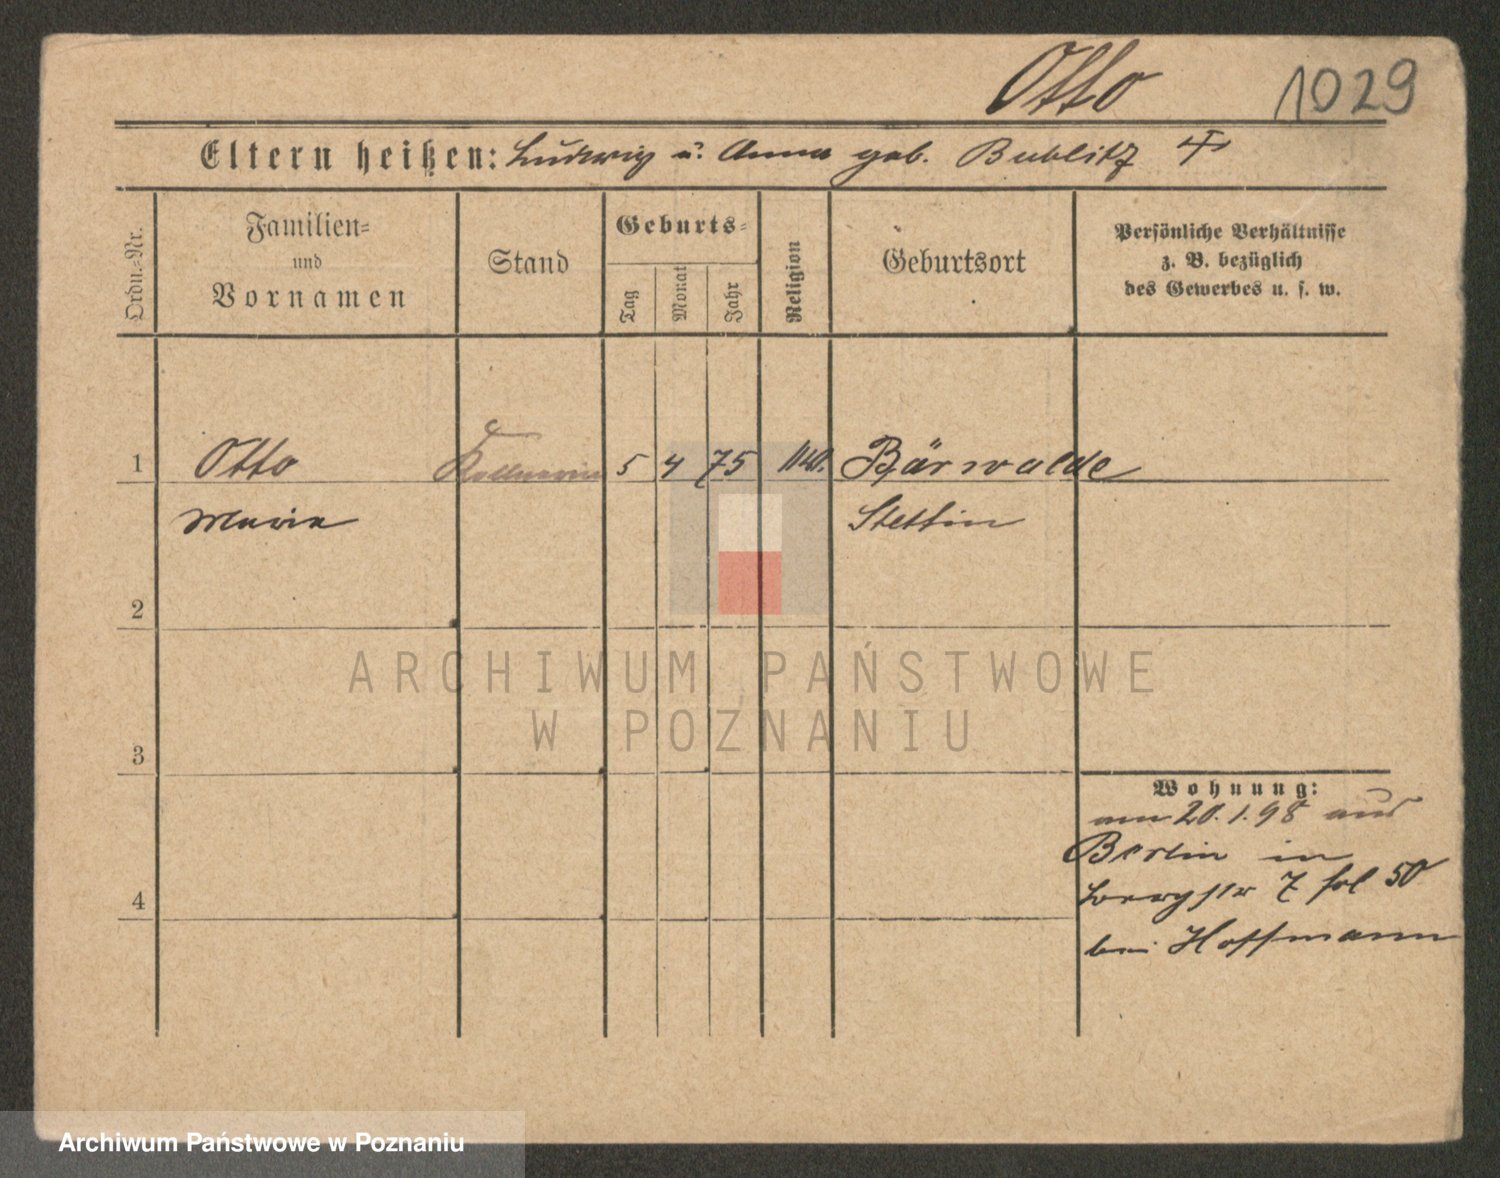 Otto 1029
Eltern heißen: Ludwig u. Anna geb. Bublitz
Ordn.-Nr.
Familien-
und
Vornamen
Stand
Geburts-
Tag
Monat
Jahr
Religion
Geburtsort
Persönliche Verhältnisse
z. B. bezüglich
des Gewerbes u. s. w.
1 Otto Kellnerin 5 4 75 Bärwalde
Marie Stettin
2
ARCHIWUM PAŃSTWOWE
W POZNANIU
3
Wohnung:
am 20.1.98 aus
Berlin in
7 fol 50
4
bei Hoffmann
Archiwum Państwowe w Poznaniu